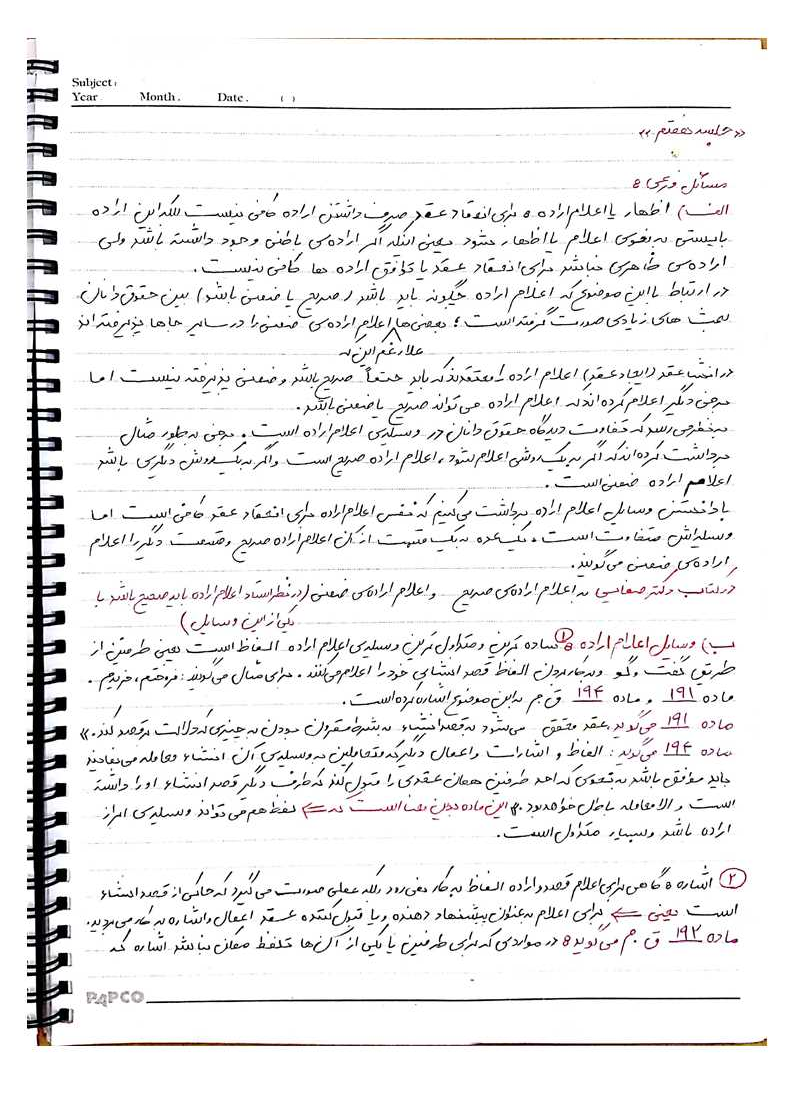 Subject:
Year . Month . Date . ( )
«جلسه هفتم»
مسائل فرعی:
الف) اظهار یا اعلام اراده: برای انعقاد عقد صرف داشتن اراده کافی نیست بلکه این اراده
بایستی به نحوی اعلام یا اظهار بشود یعنی اینکه اگر اراده‌ی باطنی وجود داشته باشد ولی
اراده‌ی ظاهری نباشد برای انعقاد عقد یا توافق اراده ها کافی نیست.
در ارتباط با این موضوع که اعلام اراده چگونه باید باشد (صریح یا ضمنی باشد) بین حقوق‌دانان
بحث های زیادی صورت گرفته است؛ بعضی‌ها اعلام اراده‌ی ضمنی را در سایر جاها پذیرفته‌اند
علارغم این که
در انشا عقد (ایجاد عقد) اعلام اراده را معتقدند که باید حتماً صریح باشد و ضمنی پذیرفته نیست اما
برخی دیگر اعلام کرده‌اند که اعلام اراده می تواند صریح یا ضمنی باشد.
به نظر می رسد که تفاوت دیدگاه حقوق دانان در وسیله‌ی اعلام اراده است. برخی به طور مثال
برداشت کرده‌اند که اگر به یک روشی اعلام بشود، اعلام اراده صریح است و اگر به یک روش دیگری باشد
اعلام اراده ضمنی است.
با دانستن وسایل اعلام اراده برداشت می‌کنیم که نفس اعلام اراده برای انعقاد عقد کافی است اما
وسیله‌اش متفاوت است، یک عده به یک قسمت از آن اعلام اراده صریح و قسمت دیگر را اعلام
اراده‌ی ضمنی می‌گویند.
در کتاب دکتر صفایی به اعلام اراده‌ی صریح و اعلام اراده‌ی ضمنی (در نظر استاد اعلام اراده باید صحیح باشد با
یکی از این وسایل)
ب) وسایل اعلام اراده: ① ساده ترین و متداول ترین وسیله‌ی اعلام اراده الفاظ است یعنی طرفین از
طریق گفت و گو و به کار بردن الفاظ قصد انشایی خود را اعلام می‌کنند. برای مثال می‌گویند: فروختم، خریدم.
ماده ۱۹۱ و ماده ۱۹۴ ق.م به این موضوع اشاره کرده است.
ماده ۱۹۱ می‌گوید: عقد محقق می‌شود به قصد انشاء به شرط مقرون بودن به چیزی که دلالت بر قصد کند.»
ماده ۱۹۴ می‌گوید: الفاظ و اشارات و اعمال دیگر که متعاملین به وسیله‌ی آن انشاء معامله می‌نمایند
باید موافق باشد به نحوی که احد طرفین همان عقدی را قبول کند که طرف دیگر قصد انشاء او را داشته
است و الا معامله باطل خواهد بود.» این ماده بدین معنا است که ⇐ لفظ هم می تواند وسیله‌ی ابراز
اراده باشد و بسیار متداول است.
② اشاره: گاهی برای اعلام قصد و اراده الفاظ به کار نمی رود بلکه عملی صورت می گیرد که حاکی از قصد انشاء
است یعنی ⇐ برای اعلام به عنوان پیشنهاد دهنده و یا قبول کننده عقد اعمال و اشاره به کار می بریم.
ماده ۱۹۲ ق.م می گوید: در مواردی که برای طرفین یا یکی از آن‌ها تلفظ ممکن نباشد اشاره که
PAPCO